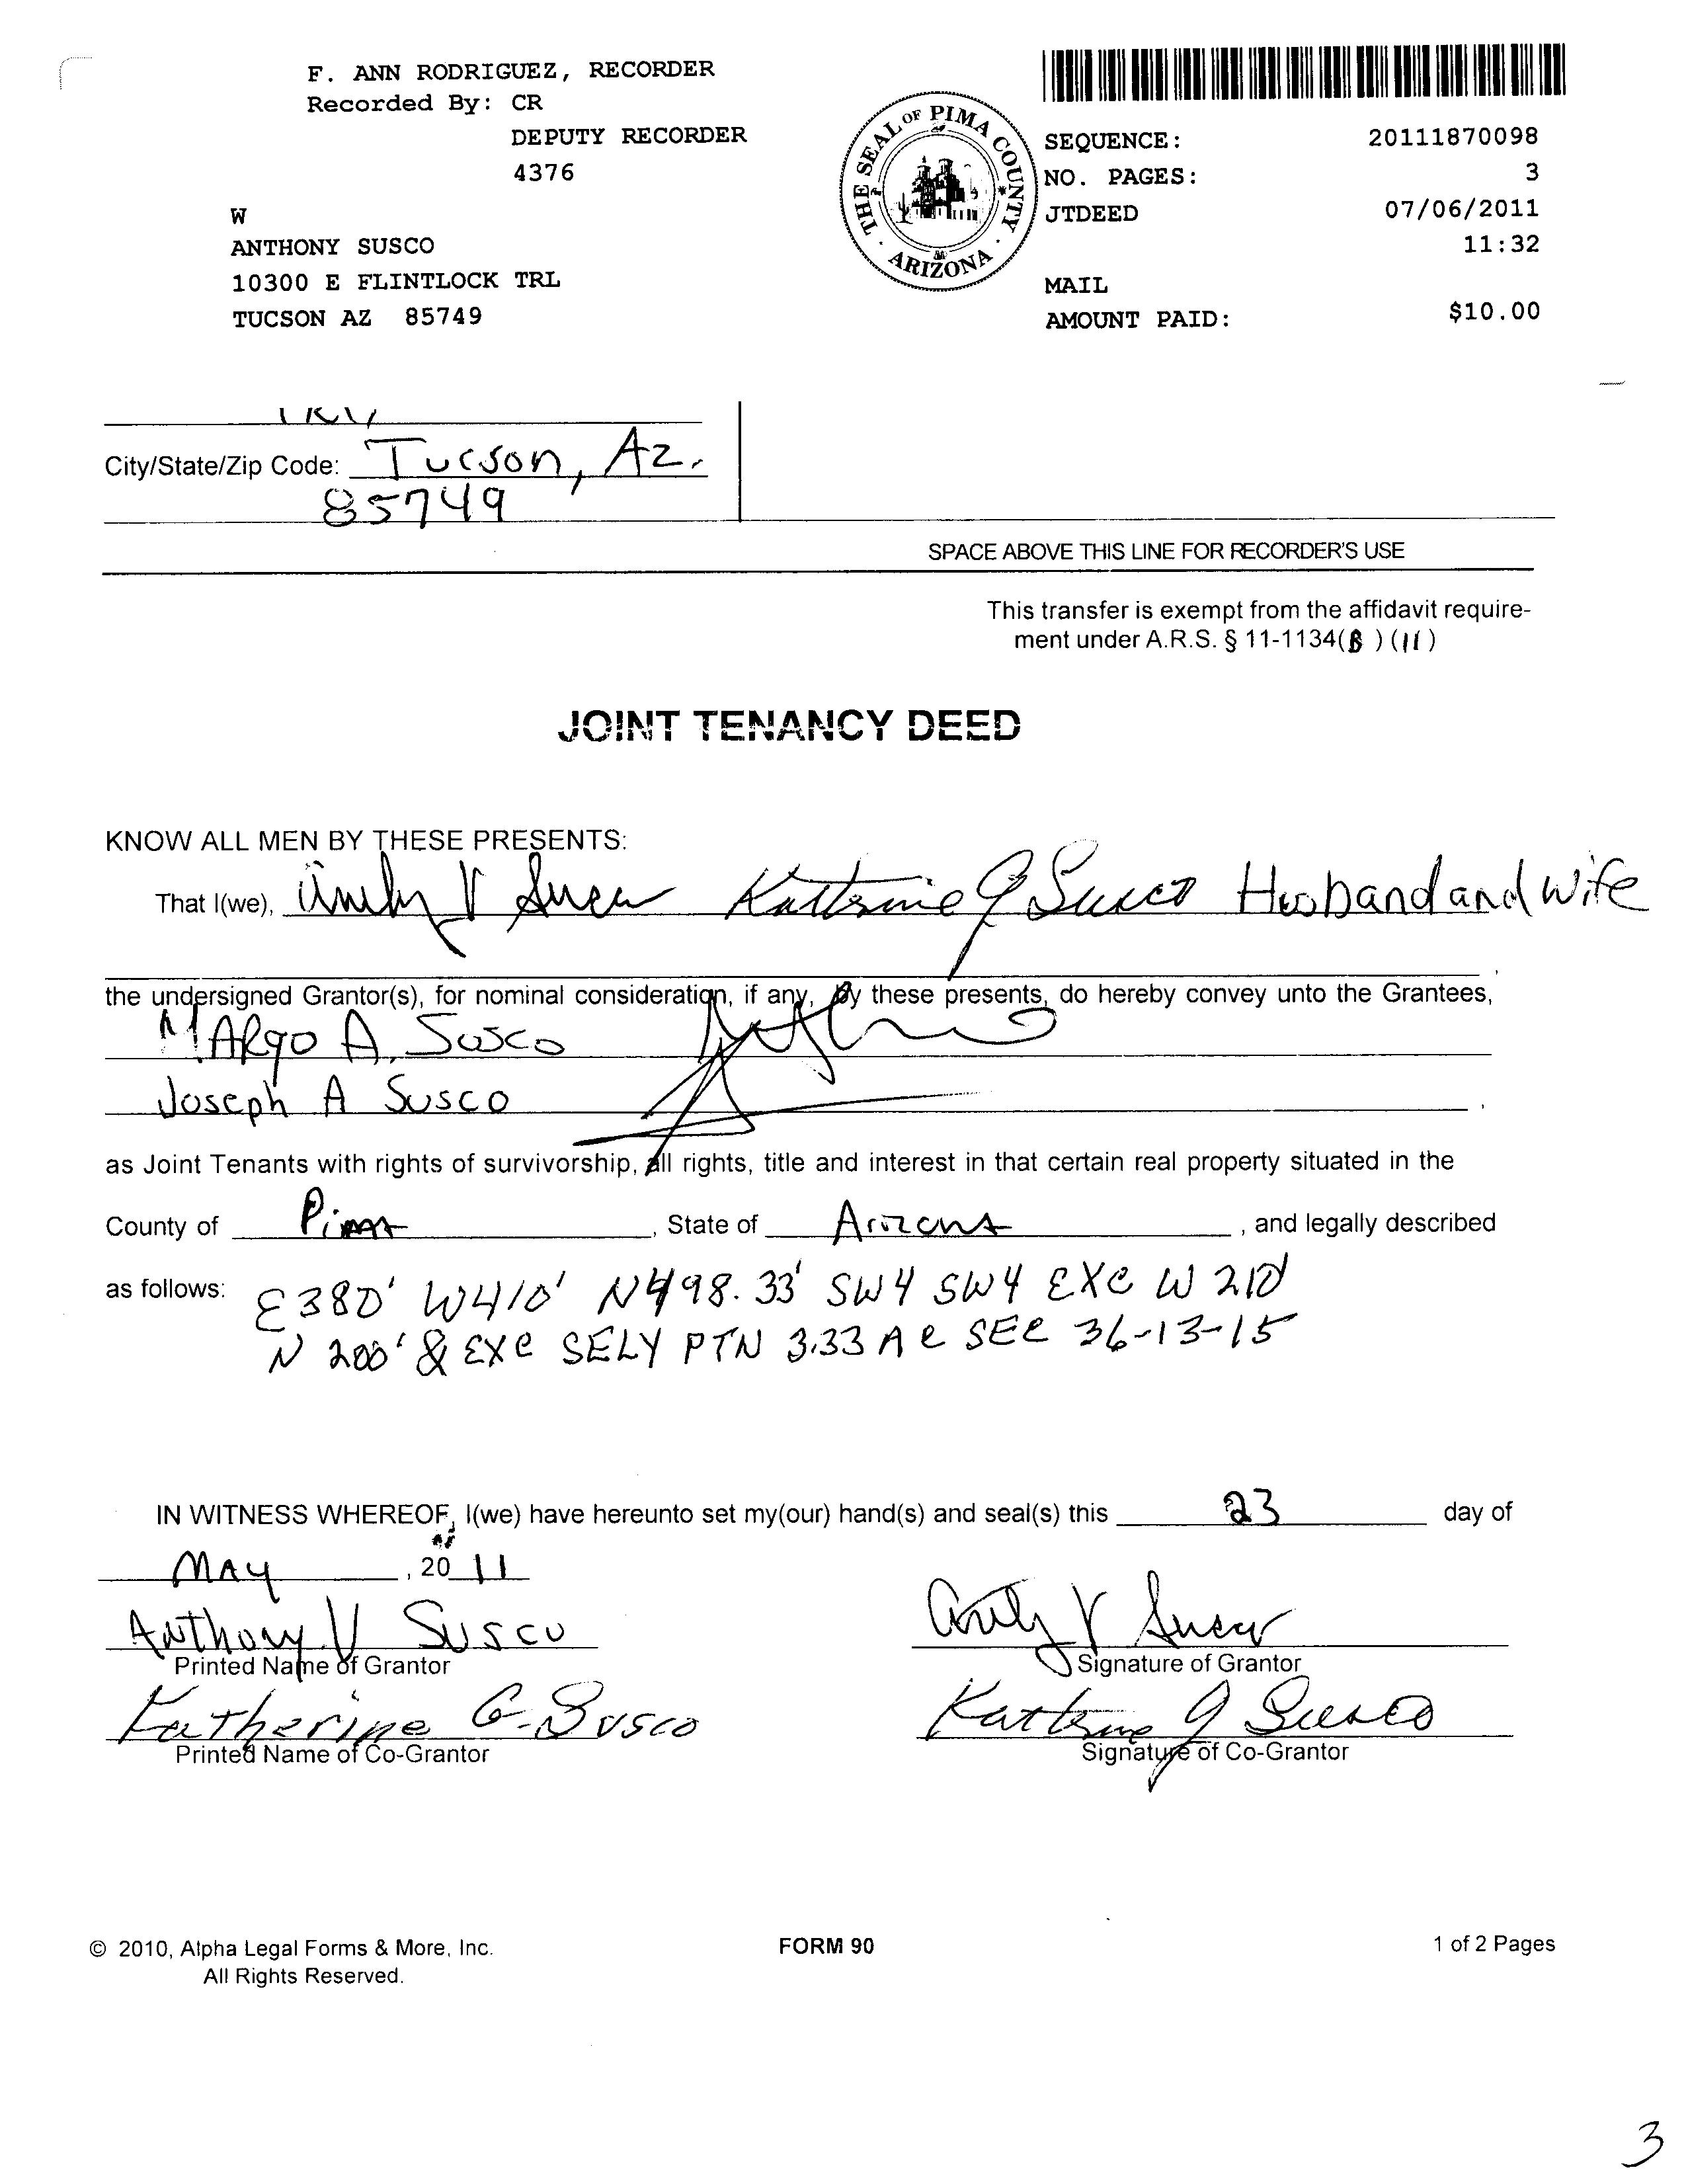 F. ANN RODRIGUEZ, RECORDER
Recorded By: CR
DEPUTY RECORDER
4376
W
ANTHONY SUSCO
10300 E FLINTLOCK TRL
TUCSON AZ 85749
THE SEAL OF PIMA COUNTY
ARIZONA
SEQUENCE: 20111870098
NO. PAGES: 3
JTDEED 07/06/2011
11:32
MAIL
AMOUNT PAID: $10.00
City/State/Zip Code: Tucson, Az.
85749
SPACE ABOVE THIS LINE FOR RECORDER'S USE
This transfer is exempt from the affidavit require-
ment under A.R.S. § 11-1134(B ) (11 )
JOINT TENANCY DEED
KNOW ALL MEN BY THESE PRESENTS:
That I(we), V Susco Katherine G Susco Husband and wife
the undersigned Grantor(s), for nominal consideration, if any, by these presents, do hereby convey unto the Grantees,
MARgo A. Susco
Joseph A Susco
as Joint Tenants with rights of survivorship, all rights, title and interest in that certain real property situated in the
County of Pima, State of Arizona, and legally described
as follows: E380' W410' N498.33' SW4 SW4 EXC W 210'
N 200' & EXC SELY PTN 3.33 AC SEC 36-13-15
IN WITNESS WHEREOF, I(we) have hereunto set my(our) hand(s) and seal(s) this 23 day of
MAY, 20 11
Anthony V Susco
Printed Name of Grantor
V Susco
Signature of Grantor
Katherine G. Susco
Printed Name of Co-Grantor
Katherine G Susco
Signature of Co-Grantor
© 2010, Alpha Legal Forms & More, Inc.
All Rights Reserved.
FORM 90
1 of 2 Pages
3